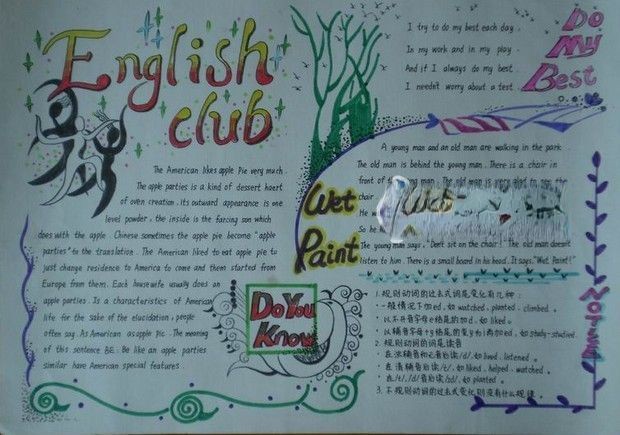 English
club
I try to do my best each day.
In my work and in my play.
And if I always do my best.
I needn't worry about a test.
Do
My
Best
The American likes apple pie very much.
The apple parties is a kind of dessert hoert
of oven creation. its outward appearance is one
level powder, the inside is the farcing son which
does with the apple. Chinese sometimes the apple pie become "apple
parties" to the translation. The American liked to eat apple pie to
just change residence to America to come and them started from
Europe from them. Each housewife usually does an
apple parties. Is a characteristics of American
life. for the sake of the elucidation, people
often say. As American as apple pie. The meaning
of this sentence BE: Be like an apple parties
similar have American special features
Wet
Paint
A young man and an old man are working in the park.
The old man is behind the young man. There is a chair in
front of
chair
He
So he
The young man says, "Don't sit on the chair! The old man doesn't
listen to him. There is a small board in his head. It says, "Wet, Paint!"
Do You
Know
1. 规则动词的过去式词是变化有几种:
一般情况下加ed. 如 watched. planted. climbed。
以不开音字母e结尾的加d. 如 liked。
以辅音字母+y结尾的变y为i再加ed. 如 study-studied.
2. 规则动词的词是读音
在浊辅音和元音后读/d/. 如 listened。
在清辅音后读/t/. 如 liked. helped. watched。
在/t/. /d/音后读/id/. 如 planted。
3. 不规则动词的过去式变化则没有什么规律。